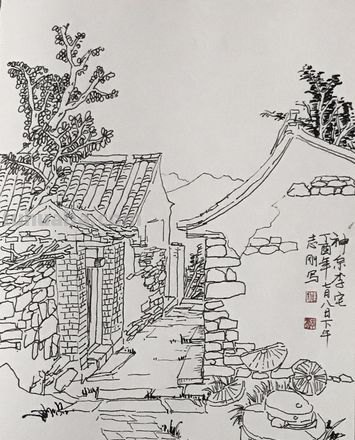 神泉李宅
丁酉年七月八日下午
志刚写